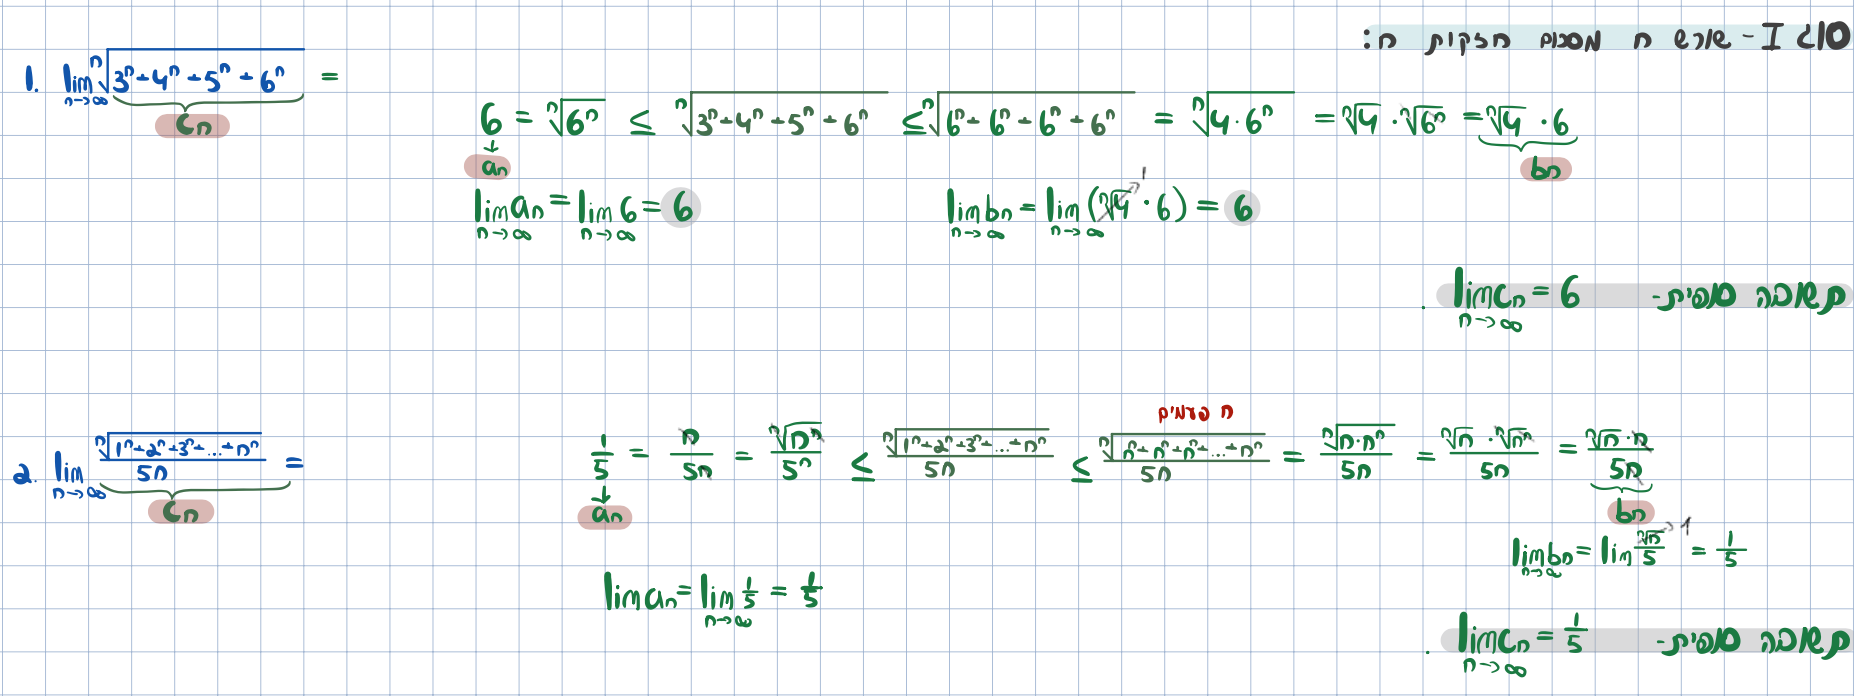 סוג I - שורש n מסכום חזקות n:
1. lim n→∞ ⁿ√(3ⁿ+4ⁿ+5ⁿ+6ⁿ) =
cₙ
6 = ⁿ√(6ⁿ) ≤ ⁿ√(3ⁿ+4ⁿ+5ⁿ+6ⁿ) ≤ ⁿ√(6ⁿ+6ⁿ+6ⁿ+6ⁿ) = ⁿ√(4·6ⁿ) = ⁿ√4 · ⁿ√(6ⁿ) = ⁿ√4 · 6
↓
aₙ bₙ
lim n→∞ aₙ = lim n→∞ 6 = 6 lim n→∞ bₙ = lim n→∞ (ⁿ√4 →1 · 6) = 6
תשובה סופית- lim n→∞ cₙ = 6 .
n פעמים
2. lim n→∞ ⁿ√(1ⁿ+2ⁿ+3ⁿ+...+nⁿ)/5n =
cₙ
1/5 = n/5n = ⁿ√(nⁿ)/5ⁿ ≤ ⁿ√(1ⁿ+2ⁿ+3ⁿ+...+nⁿ)/5n ≤ ⁿ√(nⁿ+nⁿ+nⁿ+...+nⁿ)/5n = ⁿ√(n·nⁿ)/5n = ⁿ√n · ⁿ√(nⁿ)/5n = ⁿ√n · n/5n
↓
aₙ bₙ
lim n→∞ bₙ = lim ⁿ√n/5 →1 = 1/5
lim aₙ = lim n→∞ 1/5 = 1/5
תשובה סופית- lim n→∞ cₙ = 1/5 .